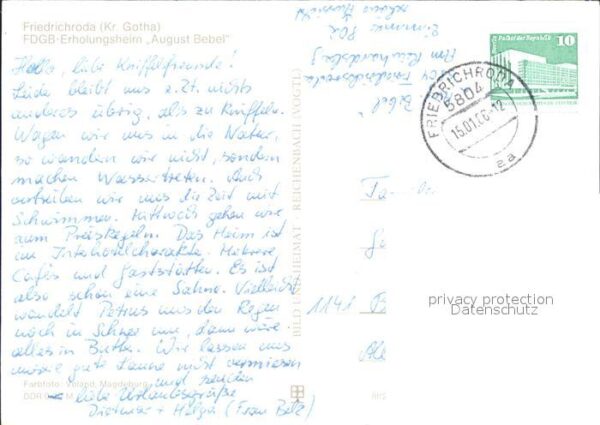 Friedrichroda (Kr. Gotha)
FDGB-Erholungsheim „August Bebel"
Hallo, liebe Kniffelfreunde!
Leider bleibt uns z. Zt. nichts
anderes übrig, als zu kniffeln.
Wagen wir uns in die Natur,
so wandern wir nicht, sondern
machen Wassertreten. Auch
vertreiben wir uns die Zeit mit
Schwimmen. Mittwoch gehen wir
zum Preiskegeln. Das Heim ist
im Interhotelcharakter. Mehrere
Cafés und Gaststätten. Es ist
also schon eine Sahne. Vielleicht
wandelt Petrus uns den Regen
noch in Schnee um, dann wäre
alles in Butter. Wir lassen uns
unsere gute Laune nicht vermiesen
und senden
liebe Urlaubsgrüße
Dietmar + Helga (Frau Belz)
Farbfoto: Voland, Magdeburg
DDR M
BILD UND HEIMAT REICHENBACH (VOGTL)
Zimmer 802
schöne Aussicht
Friedrichroda
Am Reinhardsberg
Bebel"
Palast der Republik
10
FRIEDRICHRODA
5804
15.01.86-12
aa
1141 B
privacy protection
Datenschutz